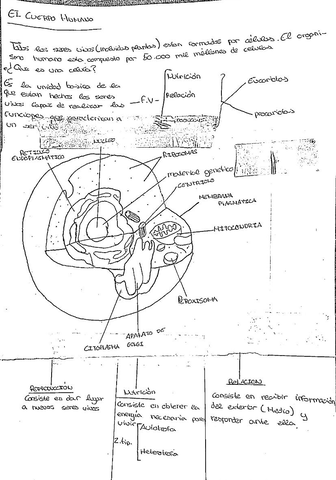 EL CUERPO HUMANO
Todos los seres vivos (incluidas plantas) estan formados por células. El organi-
smo humano esta compuesto por 50.000 mil millones de celulas
¿Que es una celula?
Es la unidad basica de la
que estan hechos los seres
vivos capaz de realizar las — F.V —
funciones que caracterizan a
un ser vivo
Nutrición
Relación
Eucariotas
procariotas
NÚCLEO
RETICULO
ENDOPLASMATICO
RIBOSOMAS
material genetico
CENTRIOLO
MEMBRANA
PLASMATICA
MITOCONDRIA
PEROXISOMA
APARATO DE
GOLGI
CITOPLASMA
REPRODUCCIÓN
Consiste en dar lugar
a nuevos seres vivos
Nutrición
Consiste en obtener la
energía necesaria para
vivir
2 tip.
Autotrofa
Heterotrofa
RELACION
Consiste en recibir información
del exterior (Medio) y
responder ante ella.